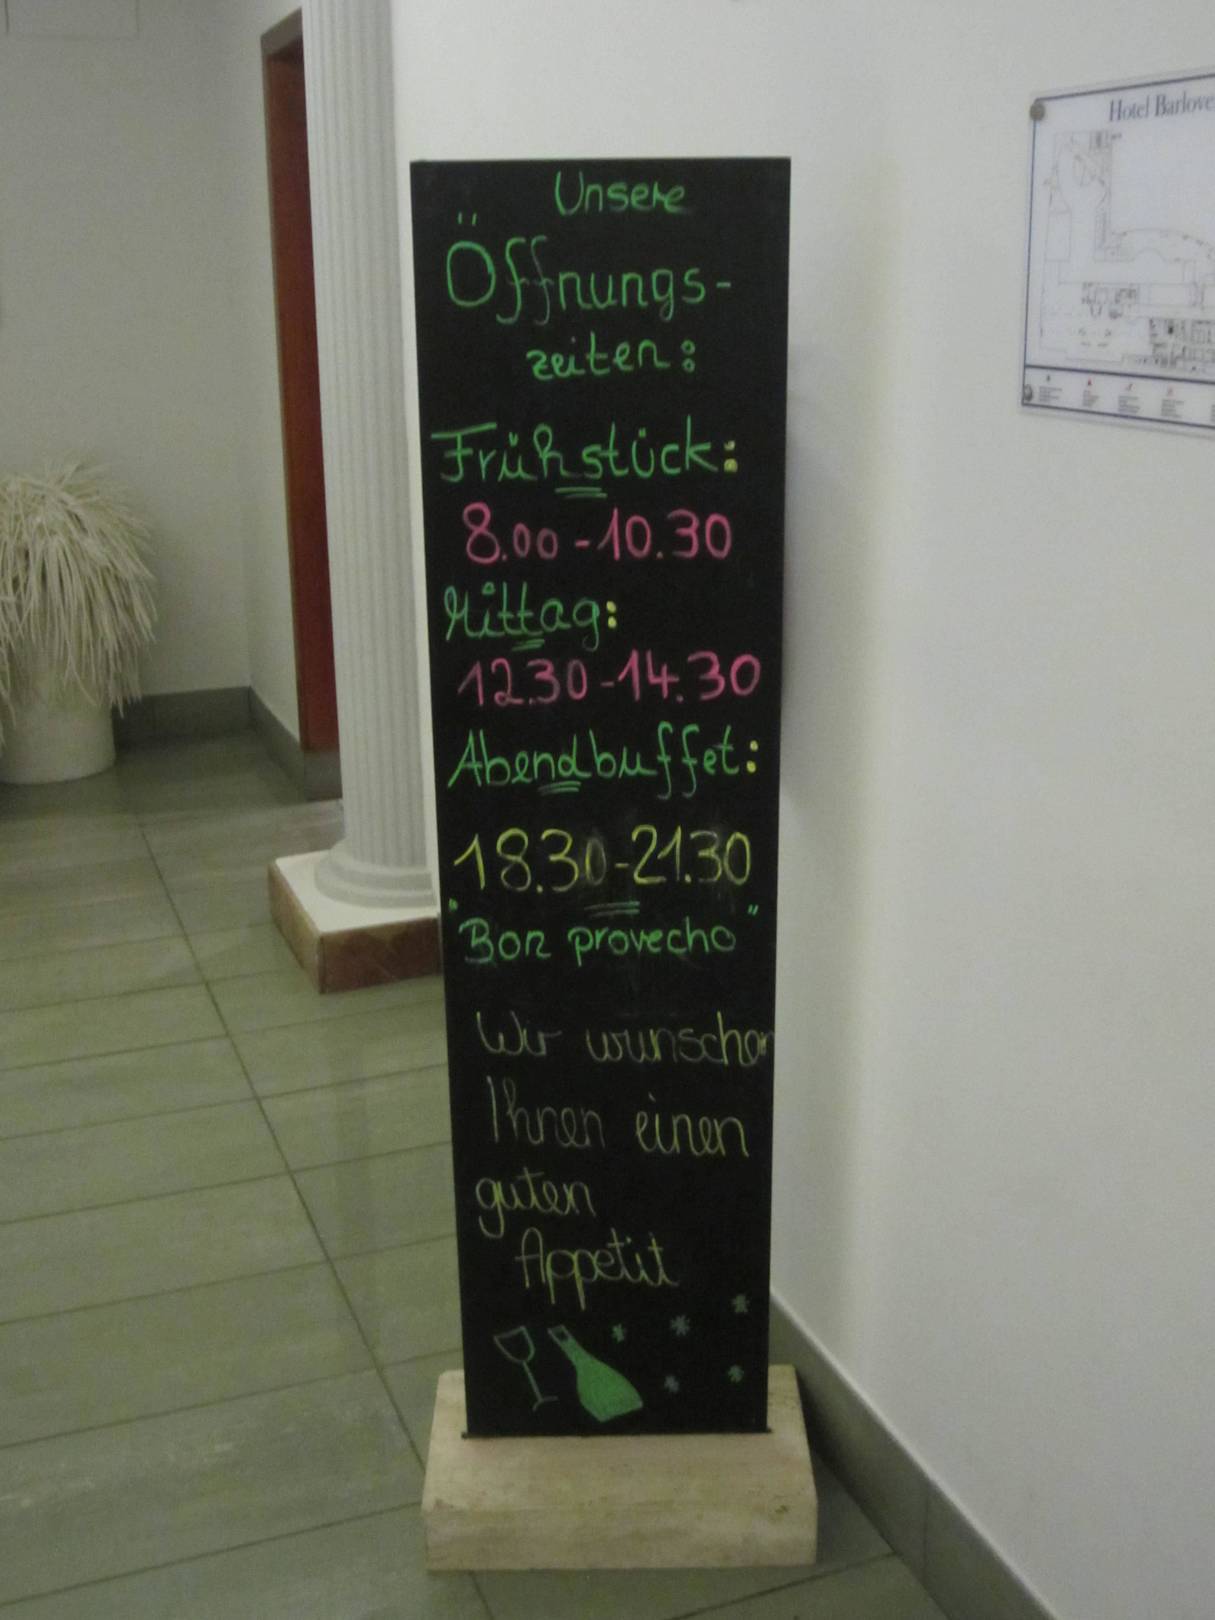 Unsere
Öffnungs-
zeiten:
Frühstück:
8.00-10.30
Mittag:
12.30-14.30
Abendbuffet:
18.30-21.30
"Bon provecho"
Wir wunschen
Ihnen einen
guten
Appetit
Hotel Barlove